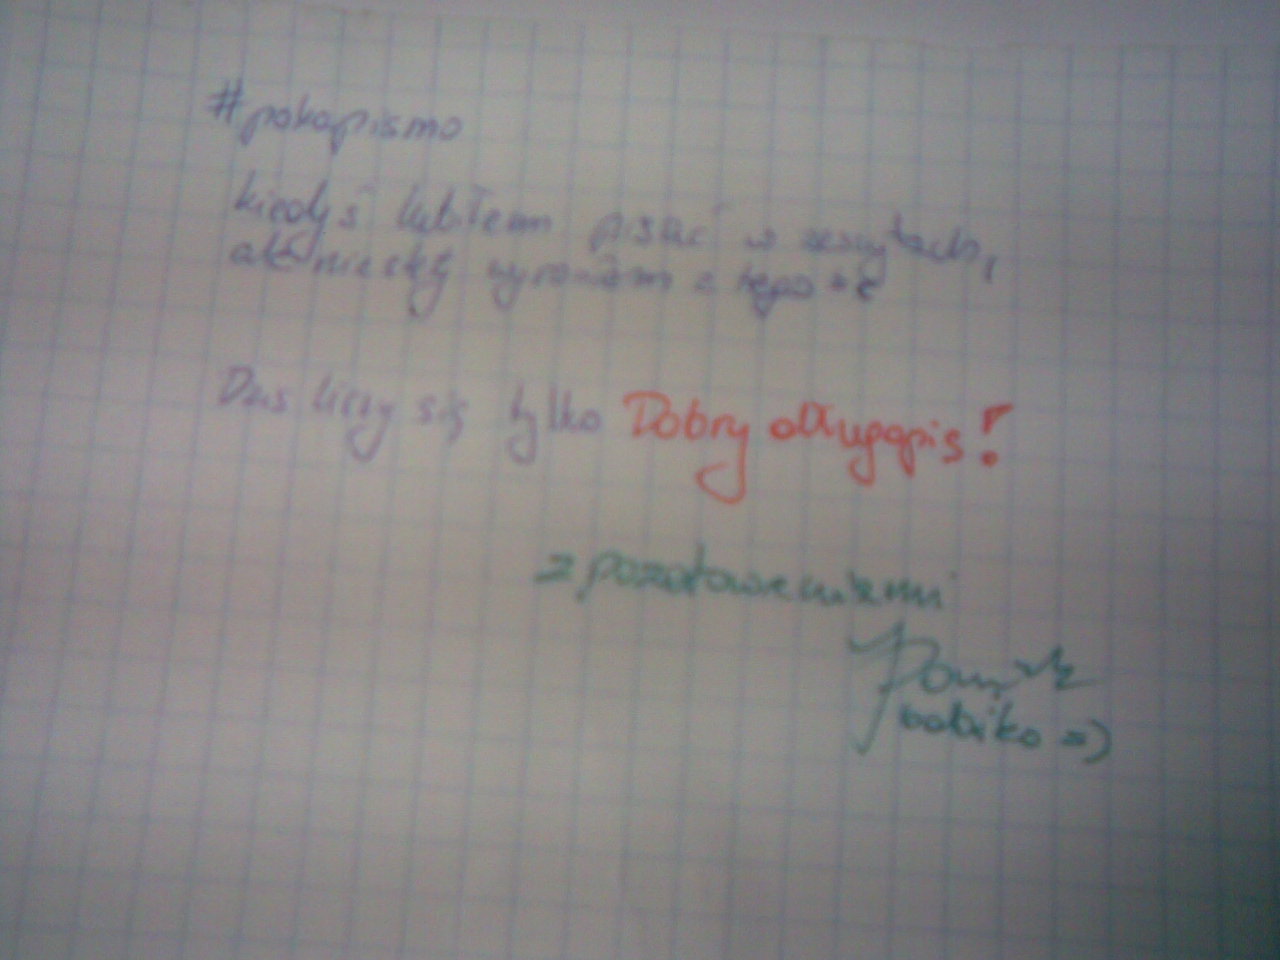 #pokapismo
kiedyś lubiłem pisać w zeszytach,
ale niestety wyrosłem z tego
Dziś liczy się tylko Dobry długopis!
z pozdrowieniami
=)